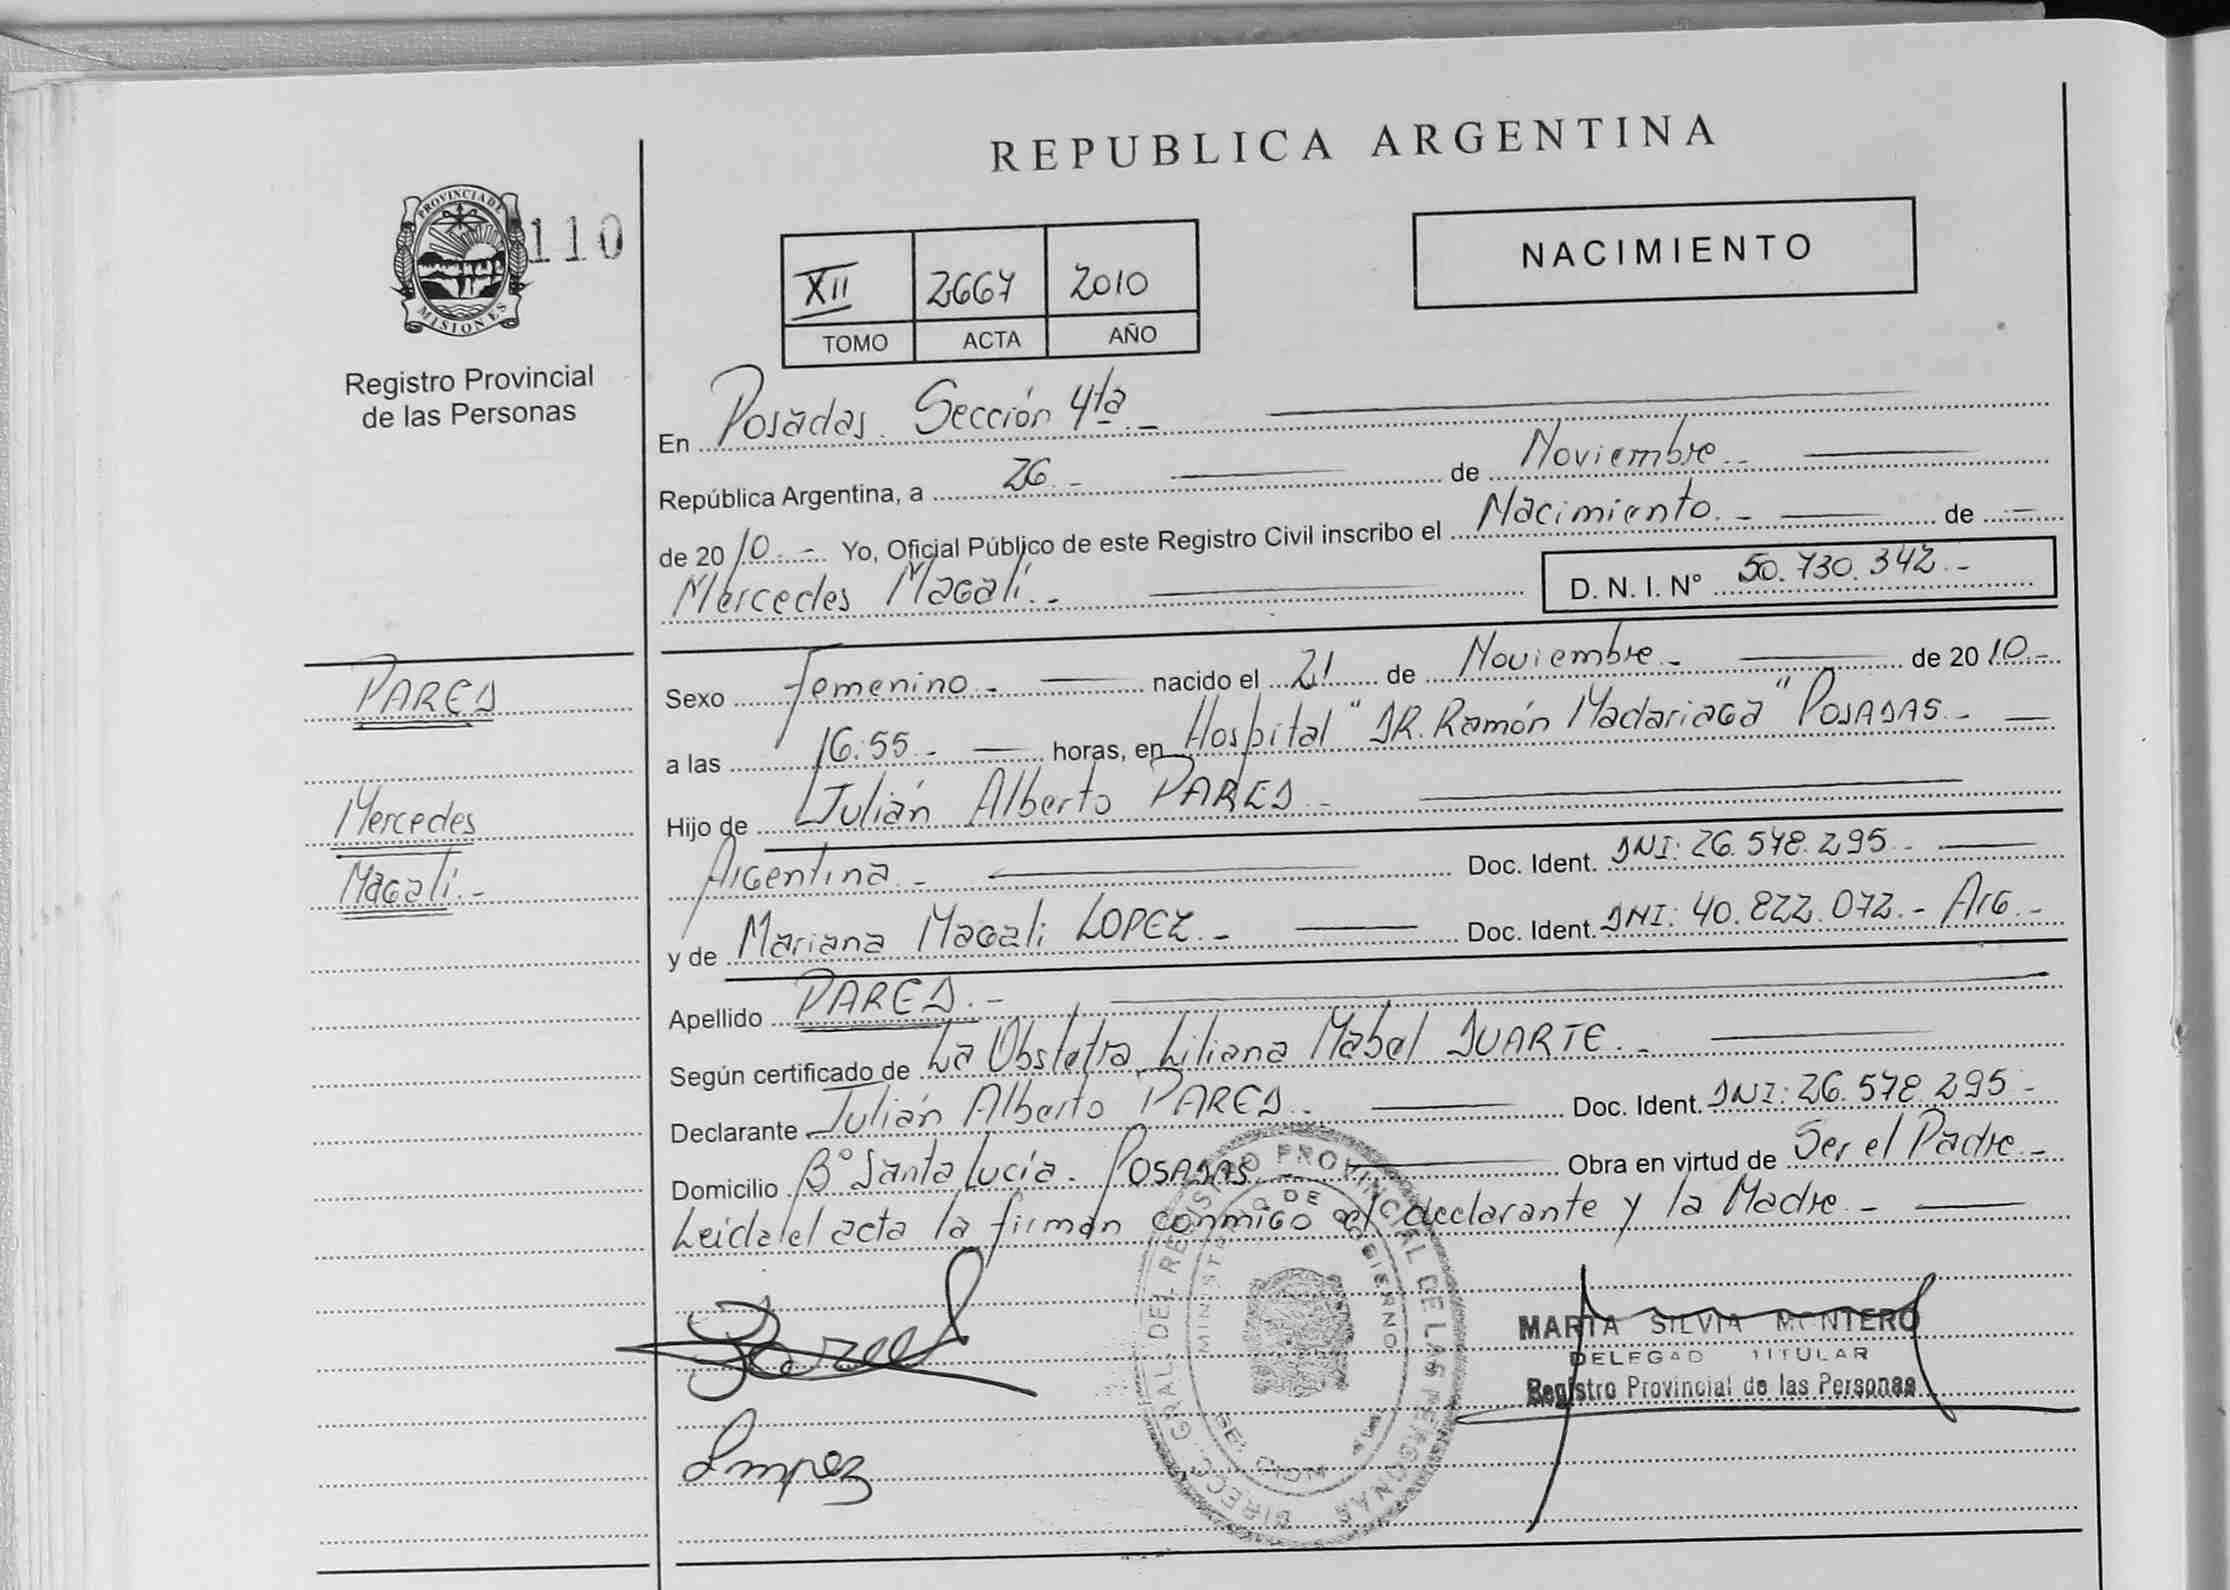 REPUBLICA ARGENTINA
PROVINCIA DE
MISIONES
110
Registro Provincial
de las Personas
NACIMIENTO
XII 2667 2010
TOMO ACTA AÑO
En Posadas. Sección 4ta.-
República Argentina, a 26.- de Noviembre.-
de 2010.- Yo, Oficial Público de este Registro Civil inscribo el Nacimiento.- de -
Mercedes Magalí.- D. N. I. N° 50.730.342.-
PARED
Mercedes
Magalí.-
Sexo Femenino.- nacido el 21 de Noviembre.- de 2010.-
a las 16:55.- horas, en Hospital "DR. Ramón Madariaga" POSADAS.-
Hijo de Julián Alberto PARED.-
Argentina.- Doc. Ident. DNI: 26.578.295.-
y de Mariana Magali LOPEZ.- Doc. Ident. DNI: 40.822.072.- Arg.-
Apellido PARED.-
Según certificado de La Obstetra Liliana Mabel DUARTE.-
Declarante Julián Alberto PARED.- Doc. Ident. DNI: 26.578.295.-
Domicilio B° Santa Lucía. POSADAS.- Obra en virtud de Ser el Padre.-
Leida el acta la firman conmigo el declarante y la Madre.-
Pared
MARIA SILVIA MONTERO
DELEGAD TITULAR
Registro Provincial de las Personas
DIRECC. GRAL. DEL REGISTRO PROVINCIAL DE LAS PERSONAS
MINISTERIO DE GOBIERNO